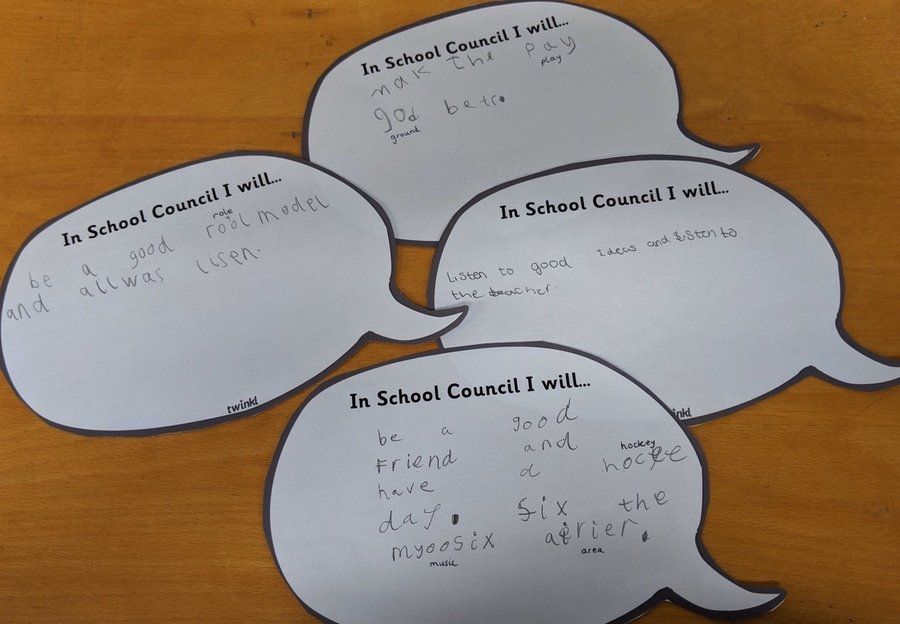 In School Council I will...
mak the pay
play
god betr.
ground
In School Council I will...
role
be a good rool model
and allwas lisen.
twinkl
In School Council I will...
listen to good ideas and listen to
the teacher.
inkl
In School Council I will...
be a good
Friend and
hockey
have a hocee
day. Six the
myoosix airier.
music area